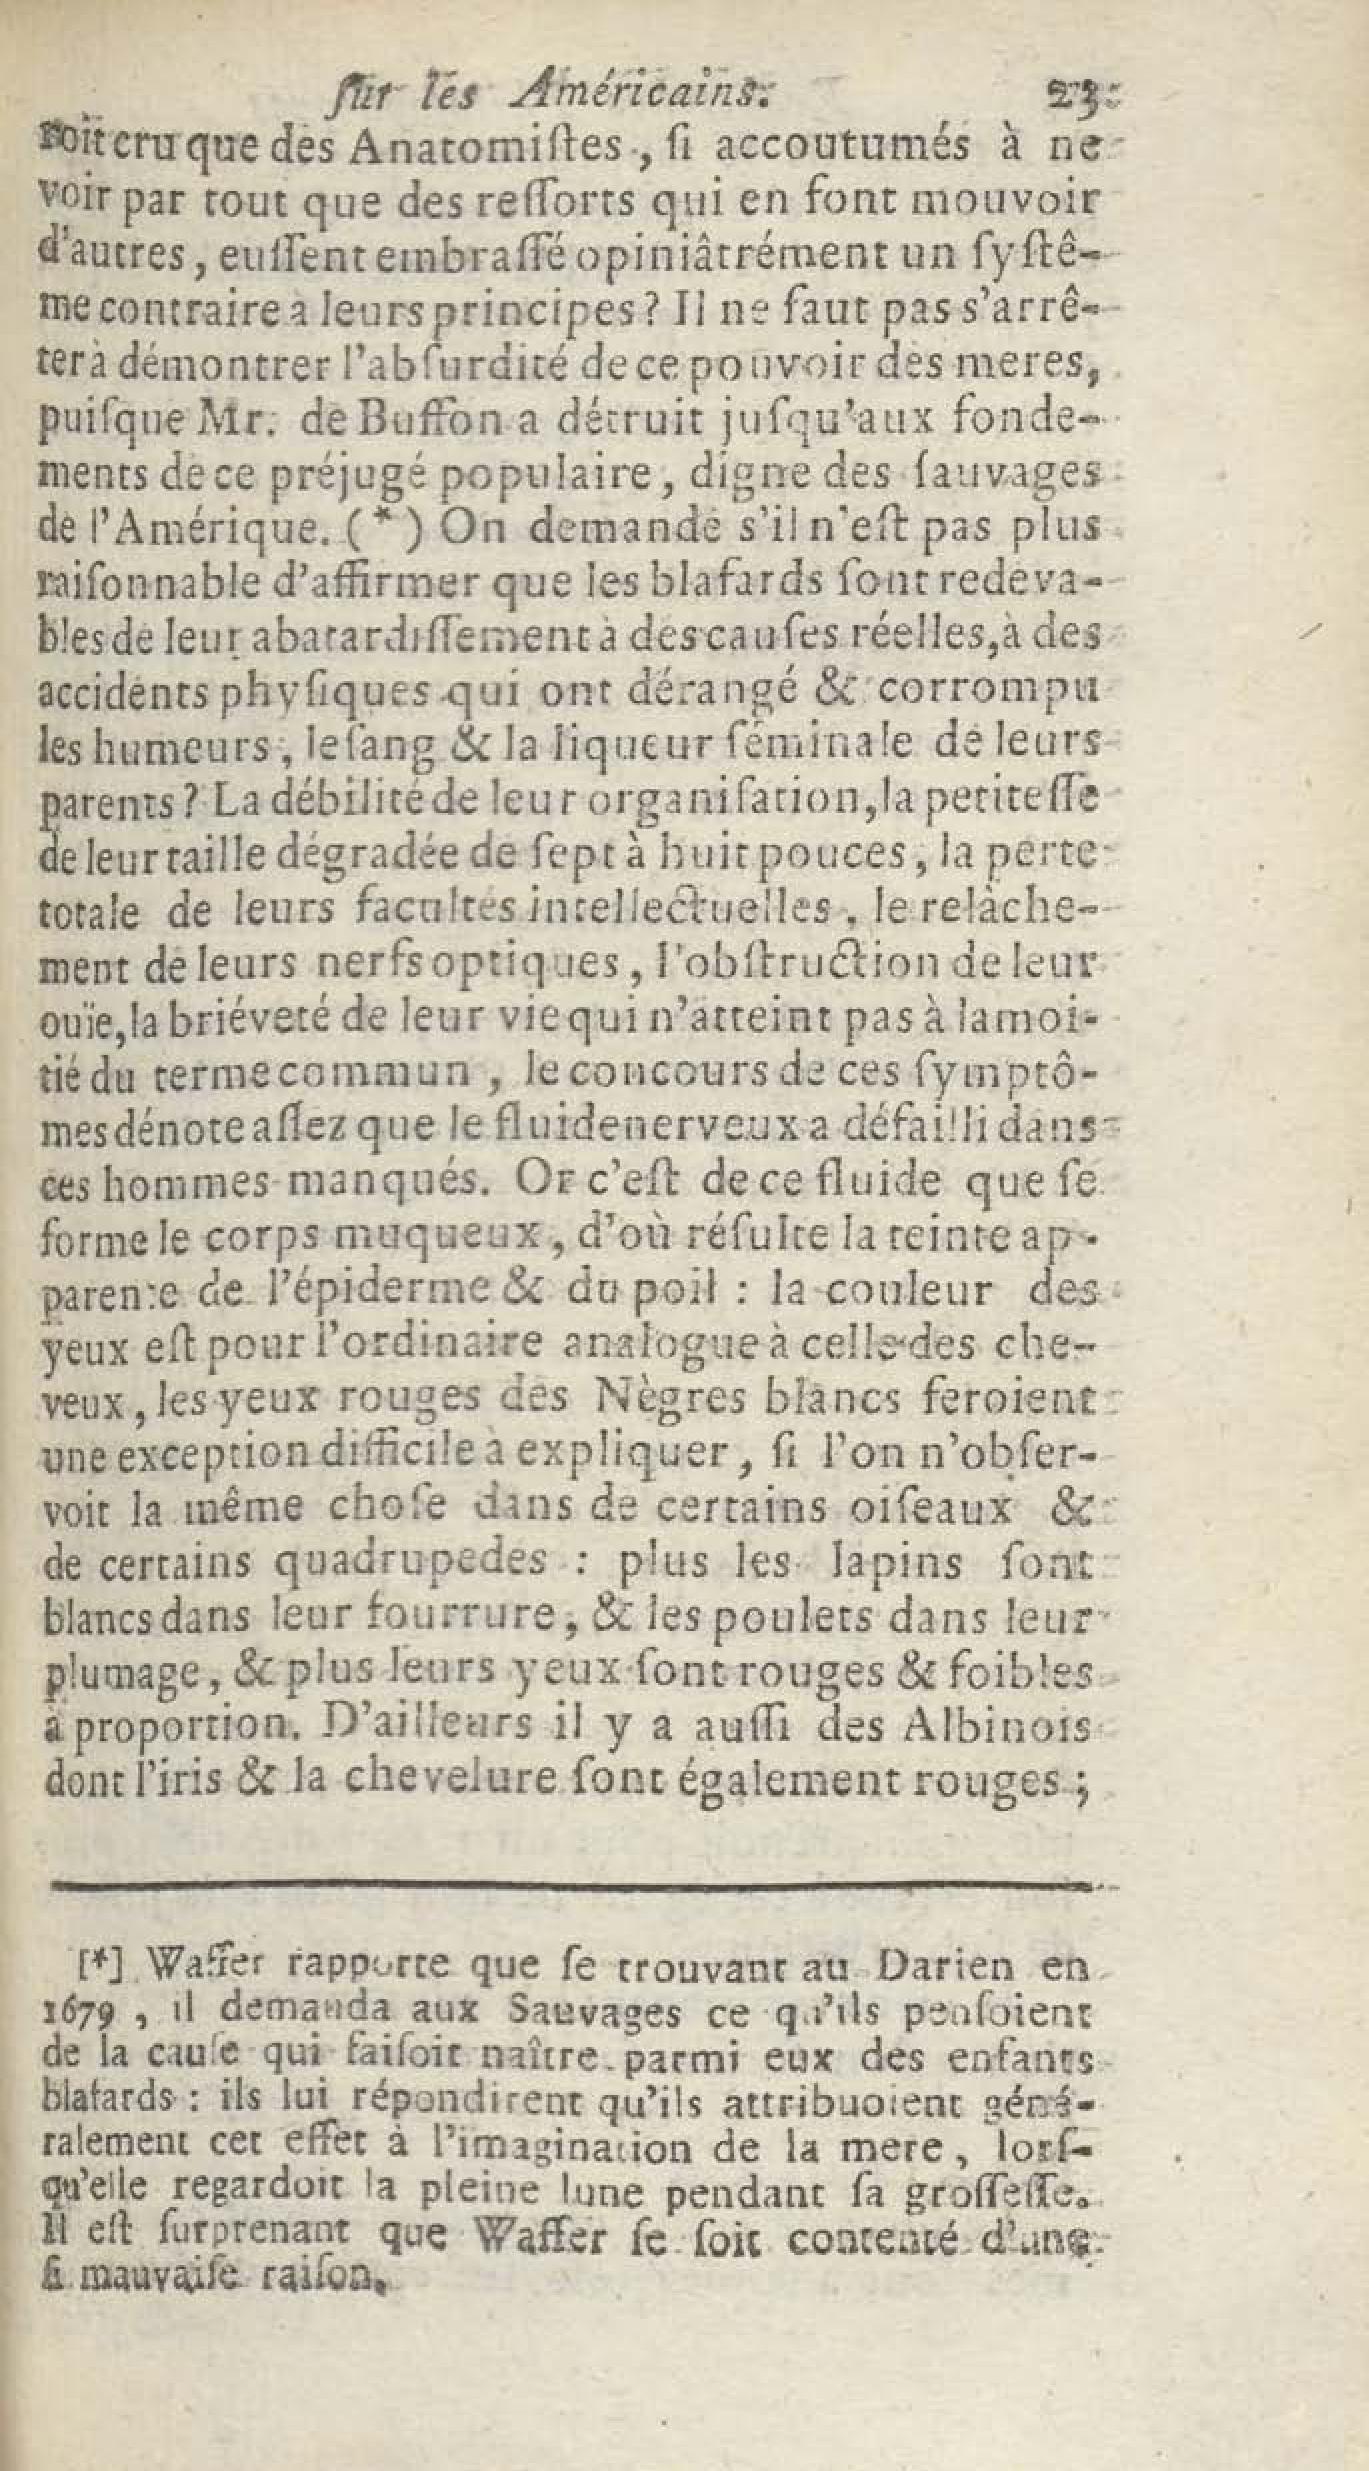 ſur les Américains. 23
roit cru que des Anatomiſtes, ſi accoutumés à ne
voir par tout que des reſſorts qui en font mouvoir
d'autres, euſſent embraſſé opiniâtrément un ſyſtê-
me contraire à leurs principes? Il ne faut pas s'arrê-
ter à démontrer l'abſurdité de ce pouvoir des meres,
puiſque Mr. de Buffon a détruit juſqu'aux fonde-
ments de ce préjugé populaire, digne des ſauvages
de l'Amérique. (*) On demande s'il n'eſt pas plus
raiſonnable d'affirmer que les blafards ſont redeva-
bles de leur abatardiſſement à des cauſes réelles, à des
accidents phyſiques qui ont dérangé & corrompu
les humeurs, le ſang & la liqueur ſéminale de leurs
parents? La débilité de leur organiſation, la petiteſſe
de leur taille dégradée de ſept à huit pouces, la perte
totale de leurs facultés intellectuelles, le relâche-
ment de leurs nerfs optiques, l'obſtruction de leur
ouïe, la briéveté de leur vie qui n'atteint pas à la moi-
tié du terme commun, le concours de ces ſymptô-
mes dénote aſſez que le fluide nerveux a défailli dans
ces hommes manqués. Or c'eſt de ce fluide que ſe
forme le corps muqueux, d'où réſulte la teinte ap-
parente de l'épiderme & du poil : la couleur des
yeux eſt pour l'ordinaire analogue à celle des che-
veux, les yeux rouges des Nègres blancs feroient
une exception difficile à expliquer, ſi l'on n'obſer-
voit la même choſe dans de certains oiſeaux &
de certains quadrupedes : plus les lapins ſont
blancs dans leur fourrure, & les poulets dans leur
plumage, & plus leurs yeux ſont rouges & foibles
à proportion. D'ailleurs il y a auſſi des Albinois
dont l'iris & la chevelure ſont également rouges ;
[*] Waffer rapporte que ſe trouvant au Darien en
1679, il demanda aux Sauvages ce qu'ils penſoient
de la cauſe qui faiſoit naître parmi eux des enfants
blafards : ils lui répondirent qu'ils attribuoient géné-
ralement cet effet à l'imagination de la mere, lorſ-
qu'elle regardoit la pleine lune pendant ſa groſſeſſe.
Il eſt ſurprenant que Waffer ſe ſoit contenté d'une
ſi mauvaiſe raiſon.